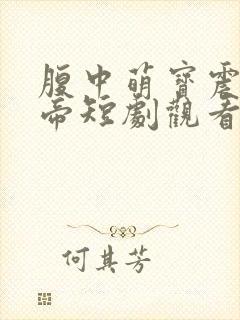 腹中萌寶震
帝短劇觀看
何其芳